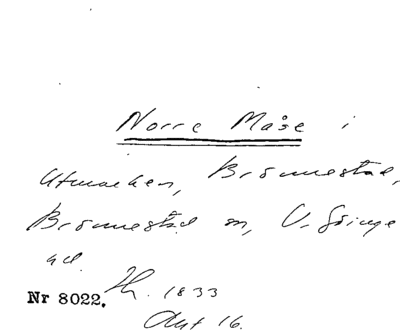 Norre Måse i
Utmarken, Brönnestad,
Brönnestad sn, V. Göinge
hd.
Nr 8022. Th. 1833
Akt 16.